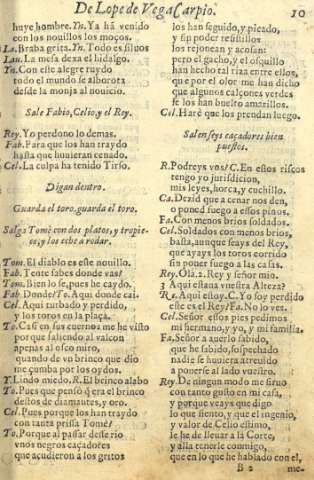 De Lope de Vega Carpio. 10
huye hombre. Yn. Ya há venido
con los nouillos los moços.
La. Braba grita. Yn. Todo es siluos
Lau. La mesa dexa el hidalgo.
Yn. Con este alegre raydo
todo el mundo se alborota
desde la monja al nouicio.
Sale Fabio, Celio, y el Rey.
Rey. Yo perdono lo demas.
Fab. Para que los han traydo
hasta que huuieran cenado.
Cel. La culpa ha tenido Tirso.
Digan dentro.
Guarda el toro, guarda el toro.
Salga Tomè con dos platos, y tropie-
ce, y los eche a rodar.
Tom. El diablo es este nouillo.
Fab. Tente sabes donde vas?
Tom. Bien lo se, pues he caydo.
Fab. Donde? To. Aqui donde cai.
Cel. Aqui turbado y perdido,
y los toros en la plaça.
To. Casi en sus cuernos me he visto
porque saliendo al balcon
apenas al osco miro,
quando de vn brinco que dio
me çumba por los oydos.
T. Lindo miedo. R. El brinco alabo
To. Pues que pensò q̃ era el brinco
destos de diamantes, y oro.
Cel. Pues porque los han traydo
con tanta prissa Tomè?
To. Porque al passar desse rio
vnos negros caçadores
que acudieron a los gritos
los han seguido, y picado,
y sin poder resistillos
los rejonean y acosan:
pero el gacho, y el osquillo
han hecho tal riza entre ellos,
que por el olor me han dicho
que algunos calçones verdes
se los han buelto amarillos.
Cel. Harè que los prendan luego.
Salen seys caçadores bien
puestos.
R. Podreys vos? C. En estos riscos
tengo yo jurisdicion,
mis leyes, horca, y cuchillo.
Ca. Dezid que a cenar nos den,
o poned fuego a estos pinos.
Fa. Con menos brios soldados.
Cel. Soldados con menos brios,
basta, aunque seays del Rey,
que ayays los toros corrido
sin poner fuego a las casas.
Rey. Ola. 2. Rey y señor mio.
3 Aqui estaua vuestra Alteza?
Re. Aqui estoy. C. Yo soy perdido
este es el Rey? Fa. No lo ves.
Cel. Señor, essos pies pedimos
mi hermano, y yo, y mi familia.
Fa. Señor a auerlo sabido,
que he sabido, sospechado
nadie se huuiera atreuido
a ponerse al lado vuestro.
Rey. De ningun modo me siruo
con tanto gusto en mi casa,
y porque veays que digo
lo que siento, y que el ingenio,
y valor de Celio estimo,
le he de lleuar a la Corte,
y alla tenerle conmigo,
que en lo que he hablado con el,
B 2 me-